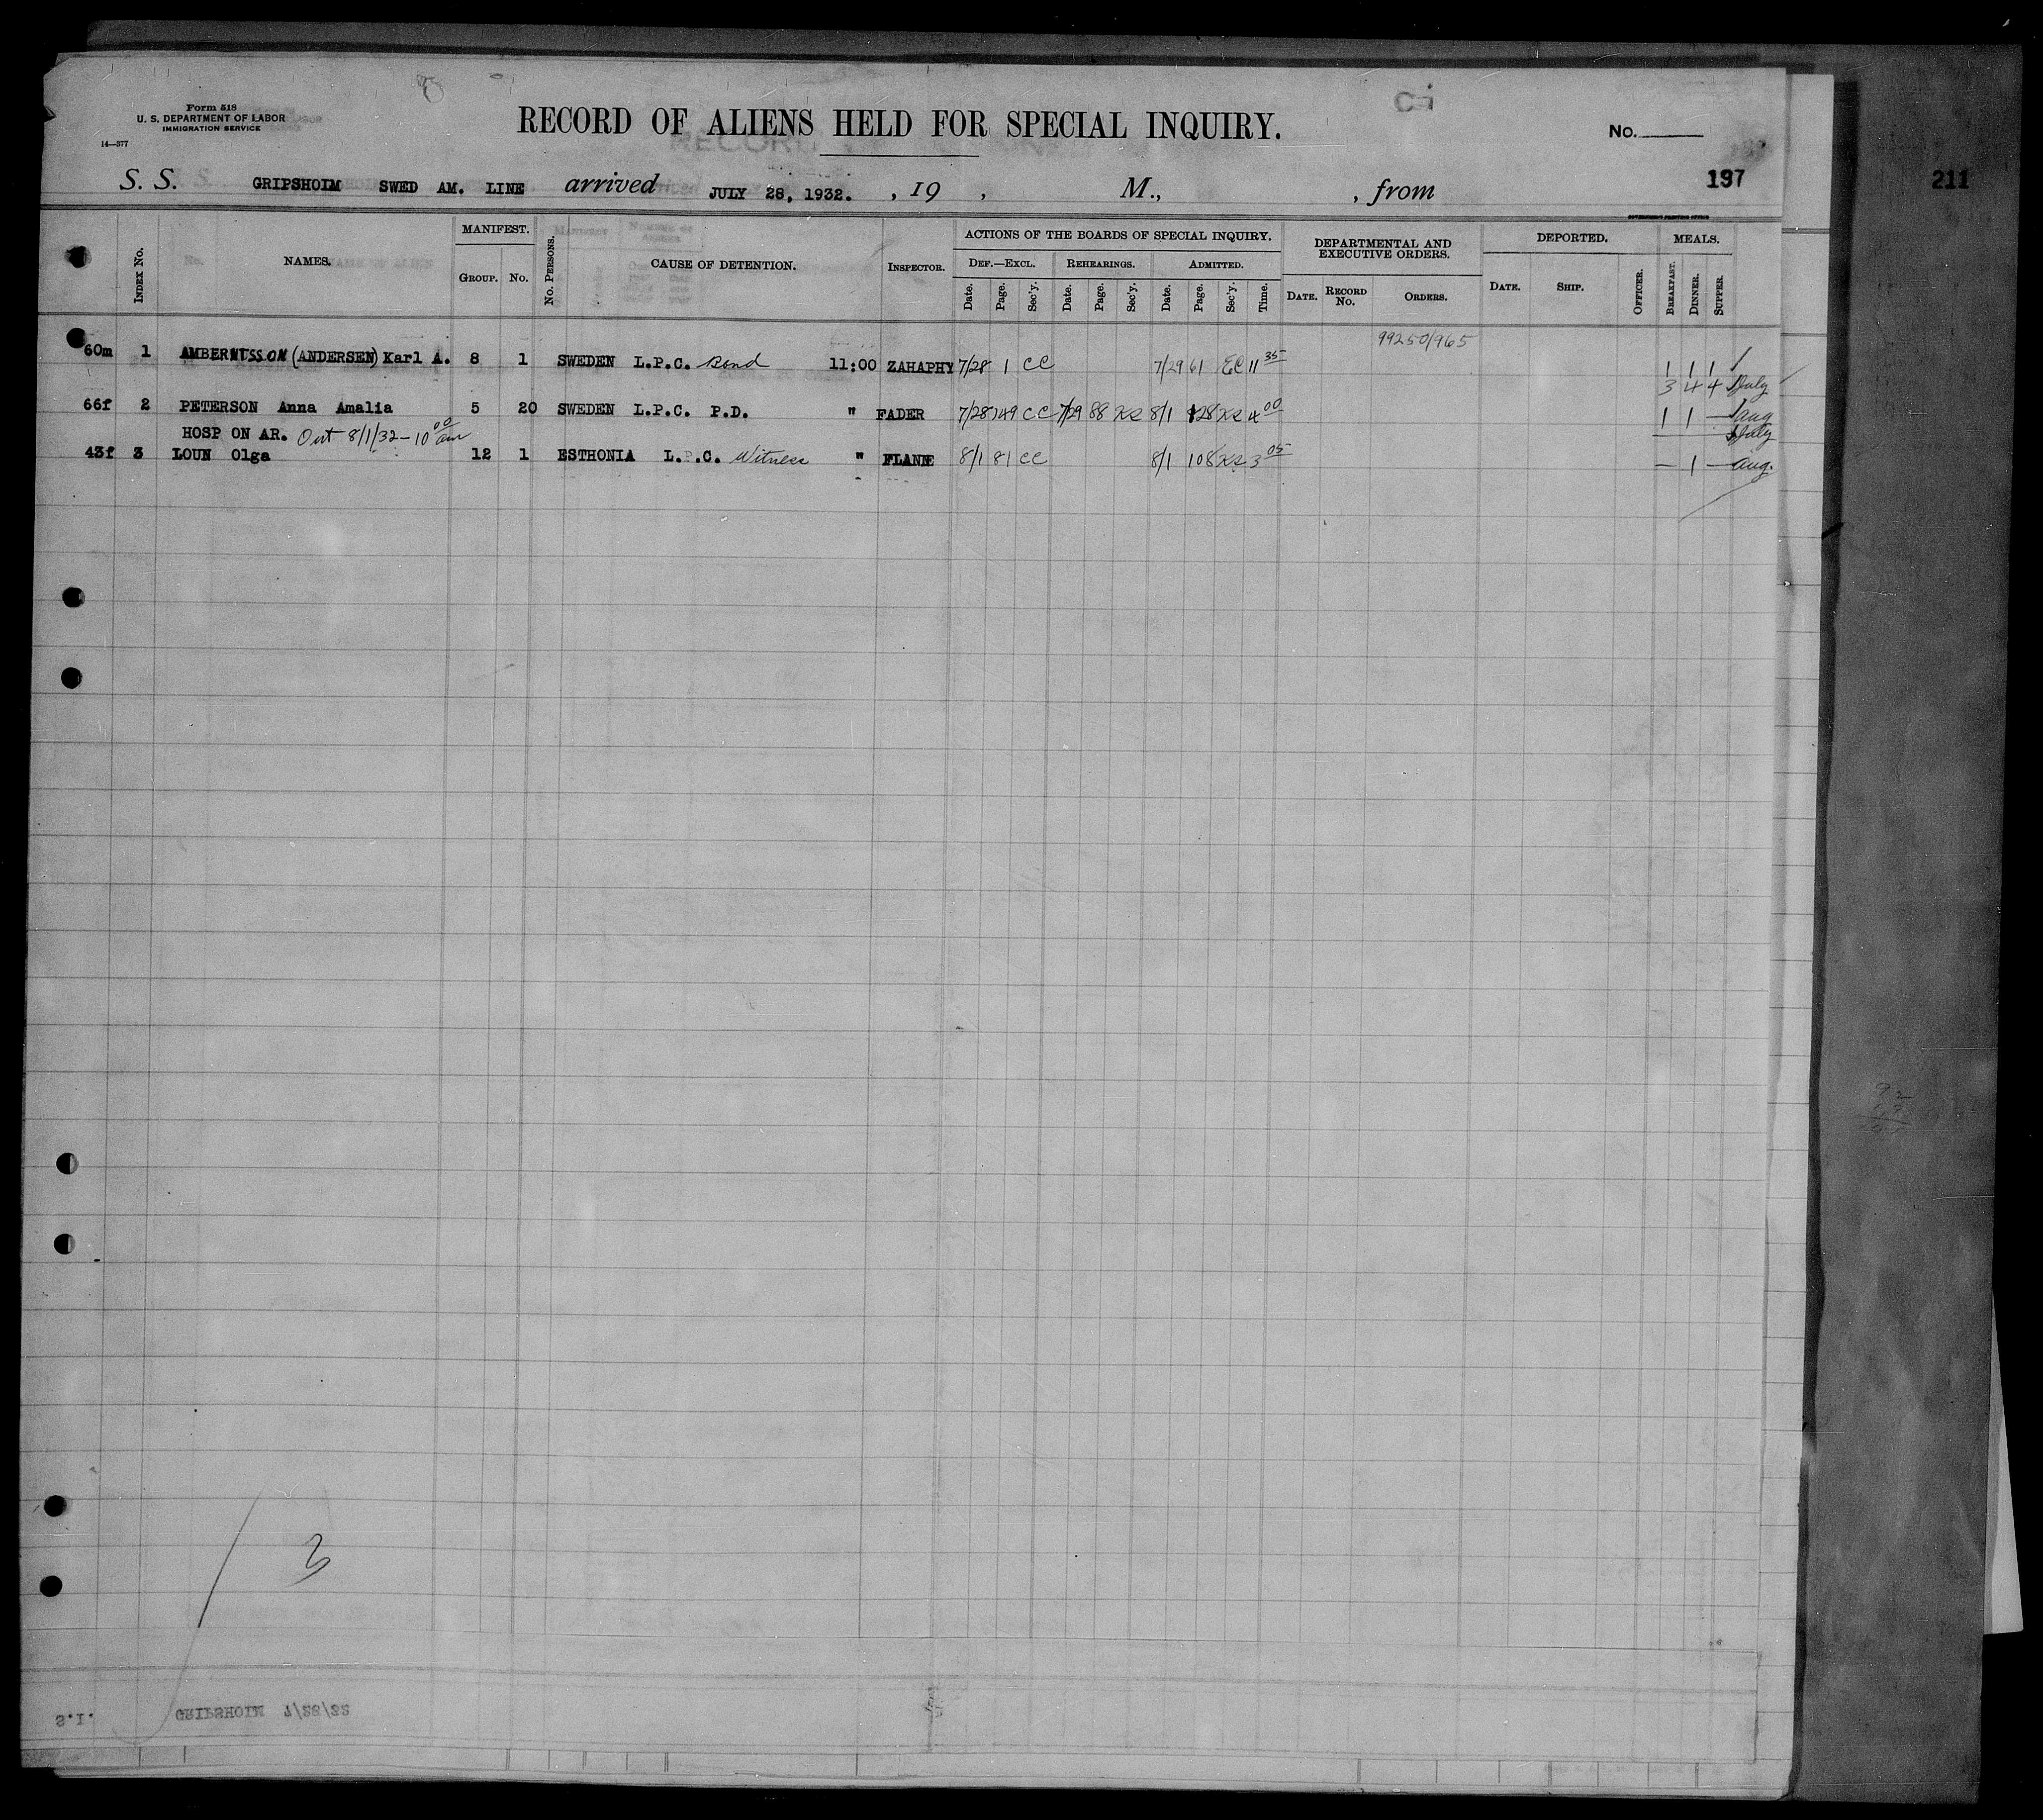 Form 518
U. S. DEPARTMENT OF LABOR
IMMIGRATION SERVICE
14—377
RECORD OF ALIENS HELD FOR SPECIAL INQUIRY.
No.
S. S. GRIPSHOLM SWED AM. LINE arrived JULY 28, 1932. , 19 , M., , from
197
211
GOVERNMENT PRINTING OFFICE
INDEX NO. NAMES. MANIFEST. GROUP. NO. NO. PERSONS. CAUSE OF DETENTION. INSPECTOR. ACTIONS OF THE BOARDS OF SPECIAL INQUIRY. DEF.—EXCL. Date. Page. Sec'y. REHEARINGS. Date. Page. Sec'y. ADMITTED. Date. Page. Sec'y. Time. DEPARTMENTAL AND EXECUTIVE ORDERS. DATE. RECORD NO. ORDERS. DEPORTED. DATE. SHIP. OFFICER. MEALS. BREAKFAST. DINNER. SUPPER.
99250/965
60m 1 AMBERNTSSON (ANDERSEN) Karl A. 8 1 SWEDEN L.P.C. Bond 11:00 ZAHAPHY 7/28 1 CC 7/29 61 EC 11 35 1 1 1
3 4 4 July
66f 2 PETERSON Anna Amalia 5 20 SWEDEN L.P.C. P.D. " FADER 7/28 249 CC 7/29 88 KS 8/1 128 KS 4 00 1 1 — Aug
HOSP ON AR. Out 8/1/32 – 10 00 am July
43f 3 LOUN Olga 12 1 ESTHONIA L.P.C. Witness " FLANNE 8/1 81 CC 8/1 108 KS 3 05 — 1 — Aug.
3
S.I. GRIPSHOLM 7/28/32